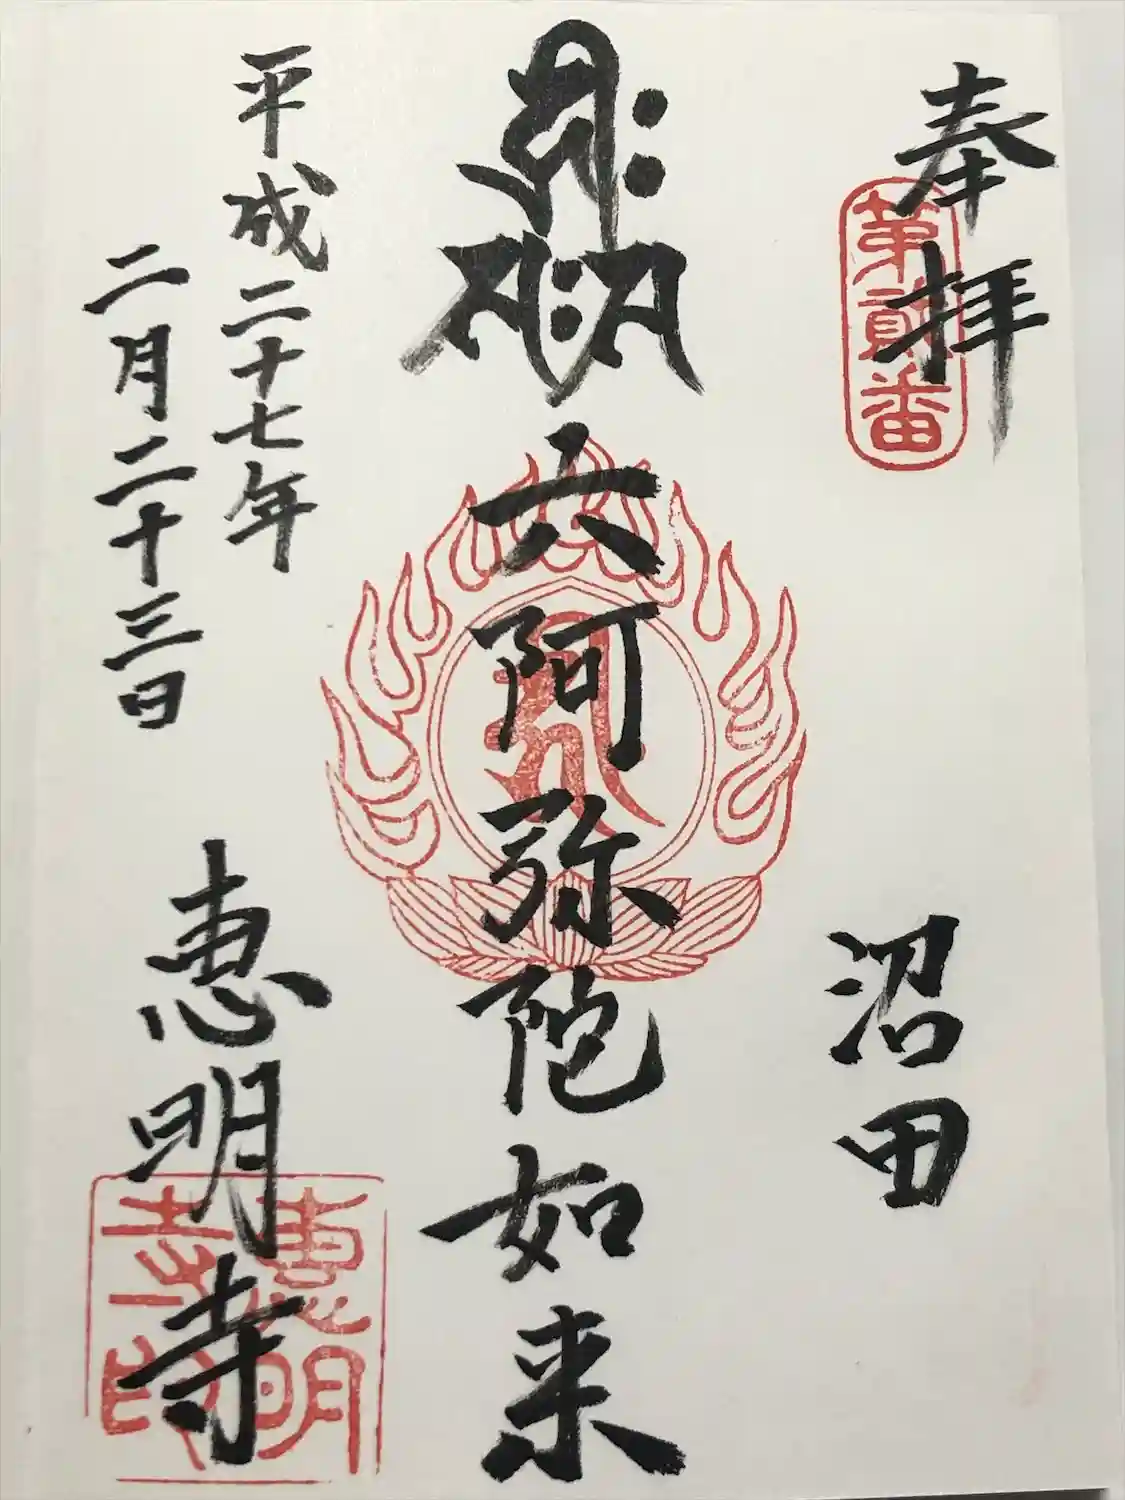 奉拝
第貮番
沼田
六阿弥陀如来
平成二十七年
二月二十三日
恵明寺
恵明
寺印